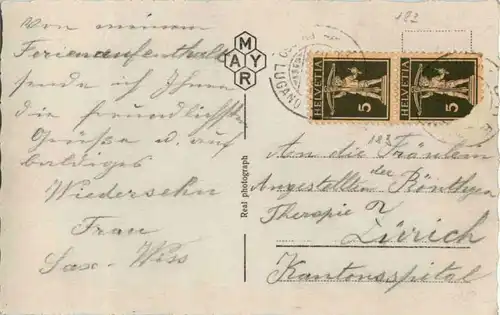 Von meinem
Ferienaufenthalt
sende ich Ihnen
die freundlichsten
Grüße u. auf
baldiges
Wiedersehn
Frau
Sax-Wiss
MAYR
Real photograph
LUGANO
HELVETIA 5
HELVETIA 5
182
182
An die Fräulein
der
Angestellten Rönthgen
Therapie
Zürich
Kantonsspital